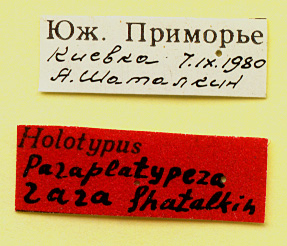 Юж. Приморье
Киевка 7.IX.1980
А. Шаталкин
Holotypus
Paraplatypeza
rara Shatalkin